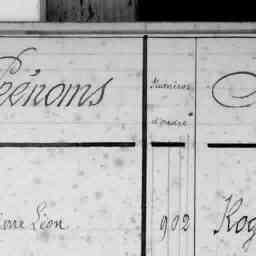 Prénoms
Numéros
d'ordre
Léon
902